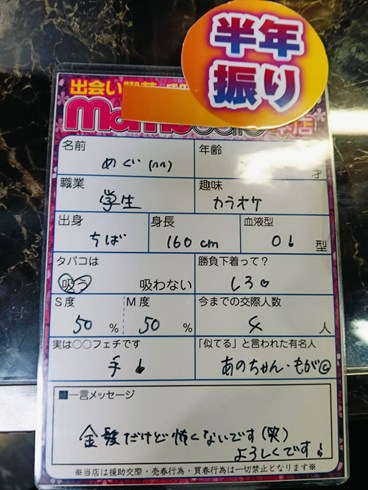 半年
振り
出会い
名前 めぐ(^^) 年齢 才
職業 学生 趣味 カラオケ
出身 ちば 身長 160cm 血液型 O 型
タバコは 吸う 吸わない 勝負下着って? しろ♡
S度 50% M度 50% 今までの交際人数 4人
実は○○フェチです 手 「似てる」と言われた有名人 あのちゃん・もが
一言メッセージ
金髪だけど怖くないです(笑)
よろしくです!
※当店は援助交際・売春行為・買春行為は一切禁止となります※